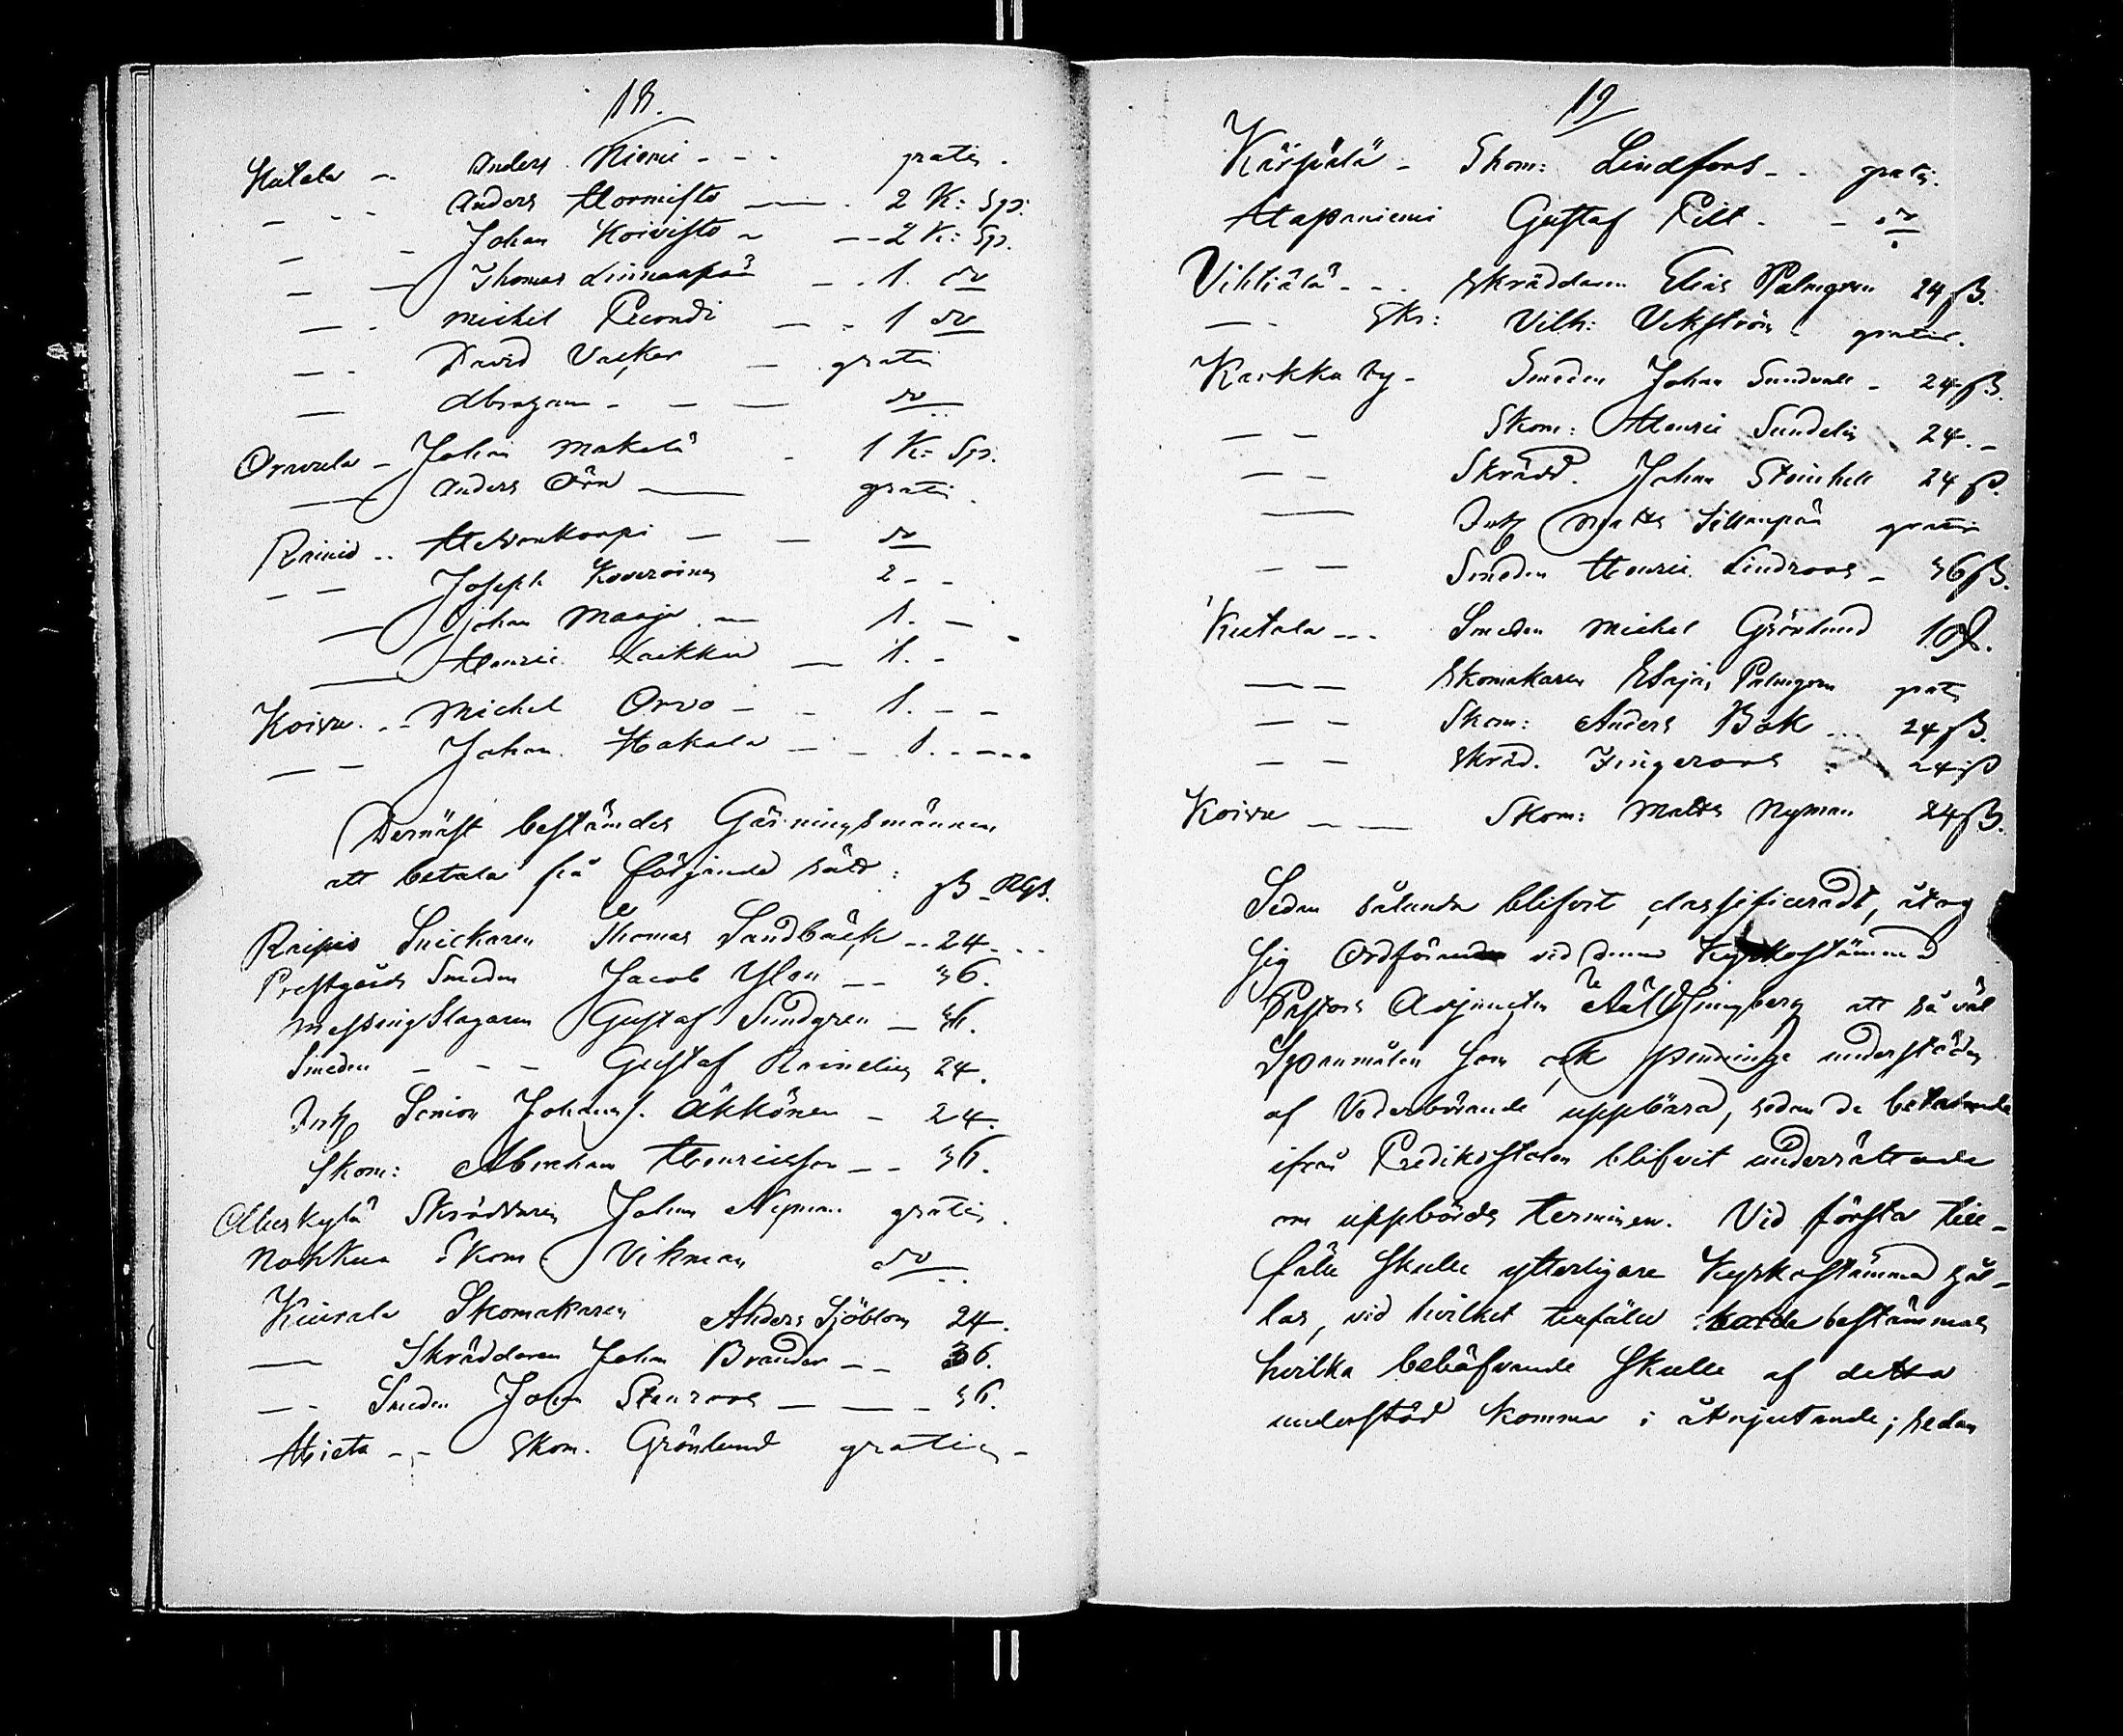 18.
Hutala - Anders Niemi - - - gratis.
- - - Anders Hormisto - 2 K: Sp:
- - Johan Koivisto - - 2 K: Sp.
- - Thomas Linnanpää - - 1. do
- - Michel Peiondi - - 1 do
- - David Vacker - gratis
- Abraham - - - do
Oravala - Johan Makelä - 1 K: Sp.
- Anders Örn - gratis.
Rainio - - Hevonkorpi - - do
- - Joseph Koveroinen 2 - -
- Johan Maaja - 1. -
- Henric Laikku - 1. -
Koivu - - Michel Orvo - - 1. - -
- - Johan Hakala - - 1. - - -
Dernäst bestämdes Gärningsmännen
att betala på följande sätt:
ß RGs.
Raipio Snickaren Thomas Sandbäck - - 24 - - -
Prestgårds Smeden Jacob Ylén - - 36.
Messingslagaren Gustaf Sundgren - 36.
Smeden - - - Gustaf Rainelius 24.
Inh Senior Johans s. Äkkönen - 24.
Skom: Abraham Henricsson - - 36.
Aluskylä Skräddaren Johan Nyman gratis.
Nohkua Skom Vikman do
Kiurala Skomakaren Anders Sjöblom 24.
- Skräddaren Johan Brander - - 36.
- - Smeden Johan Stenroos - - - 36.
Hieta - - Skom. Grönlund gratis -
19
Kärpälä - Skom: Lindfors - - gratis.
Haapaniemi Gustaf Pilt - - do
Vihtiälä - - - Skräddaren Elias Palmgren 24 ß.
- - Skr: Vilh: Vikström - gratis.
Karkku by - Smeden Johan Sundvall - 24 ß.
- - Skom: Henric Sundelin 24. -
- - Skrädd. Johan Steinhell 24 ß.
- Inh Matts Sillanpää gratis
- - Smeden Henric Lindroos - 36 ß.
Kutala - - - Smeden Michel Grönlund 10 ß.
- - Skomakaren Esajas Palmgren gratis
- - Skom: Anders Bok - - - 24 ß.
- - Skräd. Zingeroos 24 ß
Koivu - - Skom: Matts Nyman 24 ß.
Sedan sålunda blifvit classificeradt, åtog
sig Ordförande vid denna Kyrkostämma
Pastors Adjuncten Hällfingberg att så väl
Spanmålen som ock penninge understöden
af Vederbörande uppbära, sedan de betalande
ifrån Predikostolen blifvit underrättade
om uppbörds terminen. Vid första till-
fälle skulle ytterligare Kyrkostämma hål-
las, vid hvilket tillfälle borde bestämmas
hvilka behöfvande skulle af detta
understöd komma i åtnjutande; sedan